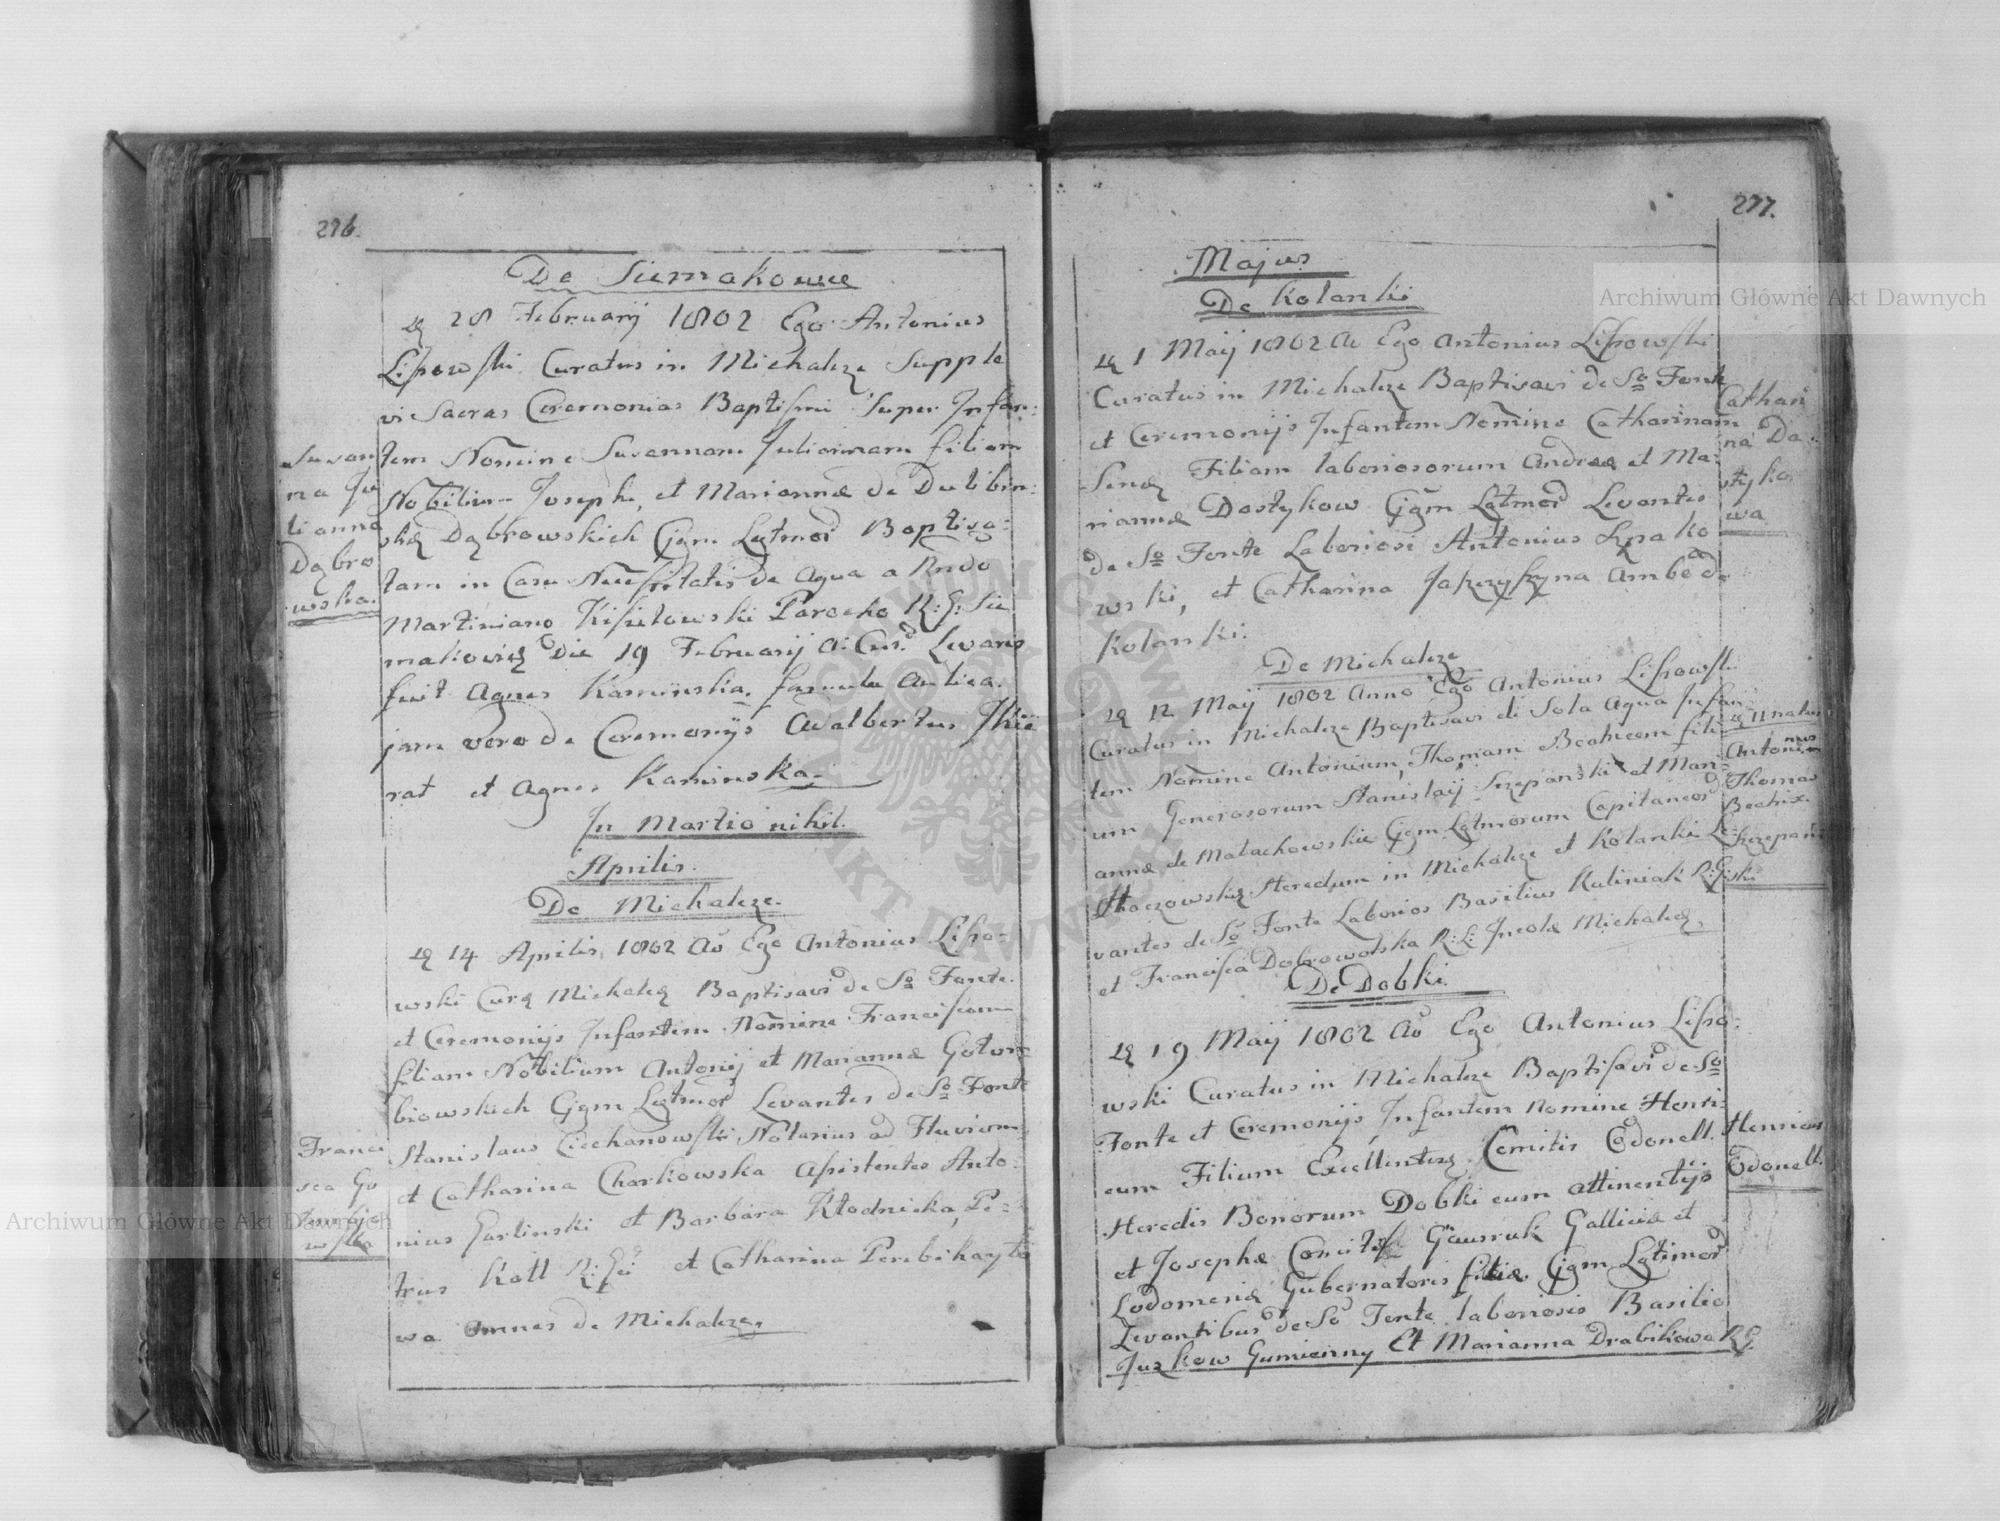 276.
De Siemakowce
d 28 Februarij 1802 Ego Antonius
Lipowski Curatus in Michalcze Supple
vi Sacras Ceremonias Baptismi Super Infan:
tem Nomine Susannam Juliannam filiam
Nobilium Josephi, et Mariannæ de Dubibin:
skie Dąbrowskich Cjgm Lgtmor̄ Baptisa:
tam in Casu Necessitatis de Aqua a Rndo
Martiniano Parocho R: G: Sie
makoviē Die 19 Februarij A: Curr̄ Levans
fuit Agnes Kaminska famula Aulica.
jam vero de Ceremonijs Avalbertus
rat et Agnes Kaminska.
Susan
na Ju
lianna
Dąbro
wska.
In Martio nihil.
Aprilis.
De Michalcze.
d 14 Aprilis 1802 Ao Ego Antonius Lipo-
wski Cur Michalcz Baptisavi de So Fonte
et Ceremonijs Infantem Nomine Franciscam
filiam Nobilium Antonij et Mariannæ Gołem
biowskich Cjgm Lgtmor̄ Levantes de So Fonte
Stanislaus Ciechanowski Notarius ad Fluvium
et Catharina Charkowska Assistentes Anto-
nius Garlinski et Barbara Kłodnicka, Pe-
trus Kott R: et Catharina
wa omnes de Michalcze.
Franci
sca Go
wska
277.
Majus
De Kolanki
d 1 Maij 1802 Ao Ego Antonius Lipowski
Curatus in Michalcze Baptisavi de So Fonte
et Ceremonijs Infantem Nomine Catharinam
Filiam laboriosorum Andreæ et Ma-
riannæ Dostykow Cjgm Lgtmor̄ Levantes
de So Fonte Laboriosi Antonius
wski, et Catharina ambe de
Kolanki.
Cathari
na Do
styko
wa
De Michalcze
d 12 Maij 1802 Anno Ego Antonius Lipowski
Curatus in Michalcze Baptisavi de Sola Aqua Infan
tem Nomine Antonium, Thomam Beatricem fili
um Generosorum Stanislaij Szczepanski et Mari-
annæ de Małachowskie Cjgm Lgtmorum Capitaneor̄
Heredum in Michalcze et Kolanki Le-
vantes de So Fonte Laborios Basilius Kuliniak R: G:
et Francisca Dobrowolska R: L: Incolæ Michalcz.
d 11 natus
Antonius
Thomas
Beatrix.
Szczepań
ski
De Dobki
d 19 Maij 1802 Ao Ego Antonius Lipo-
wski Curatus in Michalcze Baptisavi de So
Fonte et Ceremonijs Infantem Nomine Henri-
cum Filium Excellentiæ Comitis Odonell.
Heredis Bonorum Dobki cum attinentijs
et Josephæ Comitiss Gausruk Galliciæ et
Lodomeriæ Gubernatoris filiæ Cjgm Lgtimor̄
Levantibus de So Fonte laboriosis Basilio
Juzkow Gumienny Et Marianna Drabikowa R G
Henricus
Odonell.
Archiwum Główne Akt Dawnych
Archiwum Główne Akt Dawnych
ARCHIWUM GŁÓWNE AKT DAWNYCH